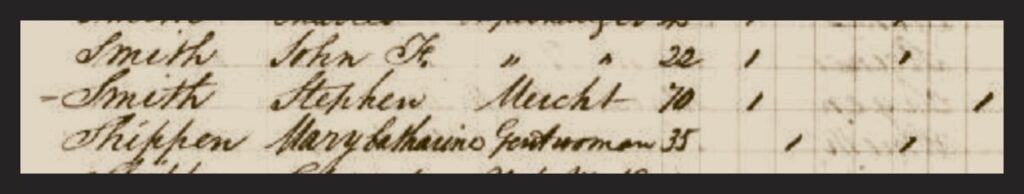 Smith John F. " " 22 ı ı
- Smith Stephen Mercht 70 ı ı
Shippen Mary Catharine Gentwoman 35 ı ı